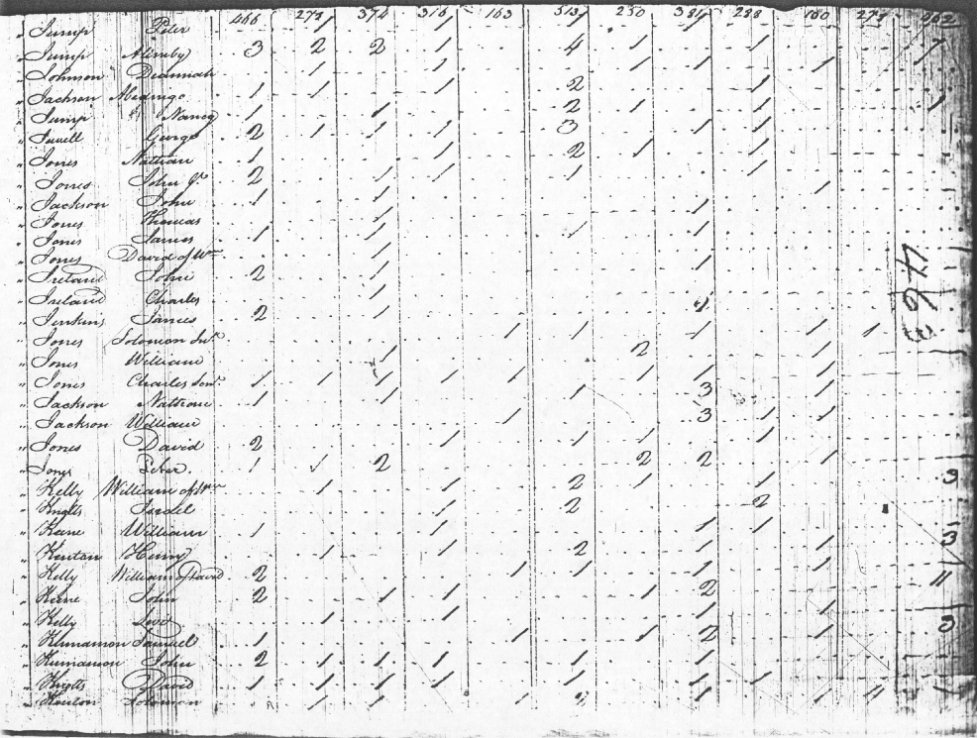 466 272 374 316 163 513 250 381 238 160 273 262
" Jump Peter 1 1 1 1
" Jump 3 2 2 1 4 1 1 1
" Johnson 1 1 1 1 1
" Jackson Abednigo 1 1 1 2 1
" Jump Nancy 1 1 2 1 1
" Jewell George 2 1 1 1 3 1 1
" Jones Nathan 1 1 2 1 1
" Jones John 2 1 1 1 1
" Jackson John 1 1 1
" Jones Thomas 1 1
" Jones James 1 1 1 1
" Jones David of Wm 1
" Ireland John 2 1 1
" Ireland Charles 1
" Jenkins James 2 1
" Jones Solomon 1 1 1 1 1
" Jones William 1 2 1
" Jones Charles 1 1 1 1 1 1 1 1
" Jackson Nathan 1 1 1 3 1
" Jackson William 1 3 1 1
" Jones David 2 1 1 1 1
" Jones Peter 1 1 2 2 2 1
" Kelly William of Wm 1 1 2 1 1 3
" Knotts 1 2 2
" Keene William 1 1 1 1 3
" Kenton Henry 1 1 2 1 1
" Kelly William of David 2 1 1 1 1 11
" Keene John 2 1 1 1 2
" Kelly Levi 1 1 1 1 3
" Samuel 1 1 1 2 1
" John 2 1 1 1 1 1
" Knotts David 1 1 1 1 1 1 1
" Kenton Solomon 1 1 1 1